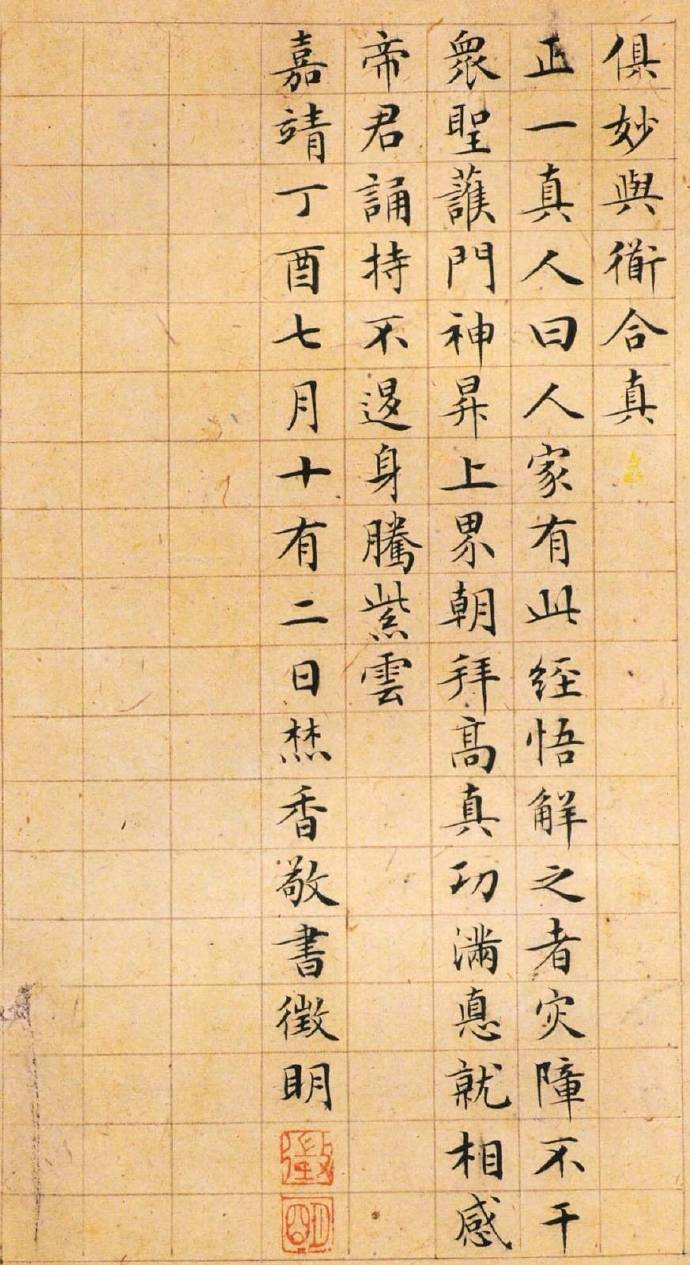 俱妙與衜合真
正一真人曰人家有此經悟解之者灾障不干
眾聖護門神昇上界朝拜高真功滿悳就相感
帝君誦持不退身騰紫雲
嘉靖丁酉七月十有二日焚香敬書徵明
徵
明